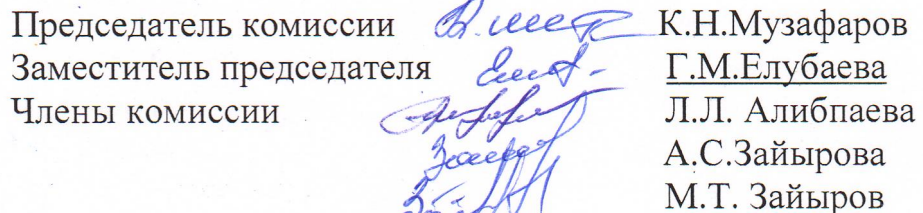 Председатель комиссии К.Н.Музафаров
Заместитель председателя Г.М.Елубаева
Члены комиссии Л.Л. Алибпаева
А.С.Зайырова
М.Т. Зайыров